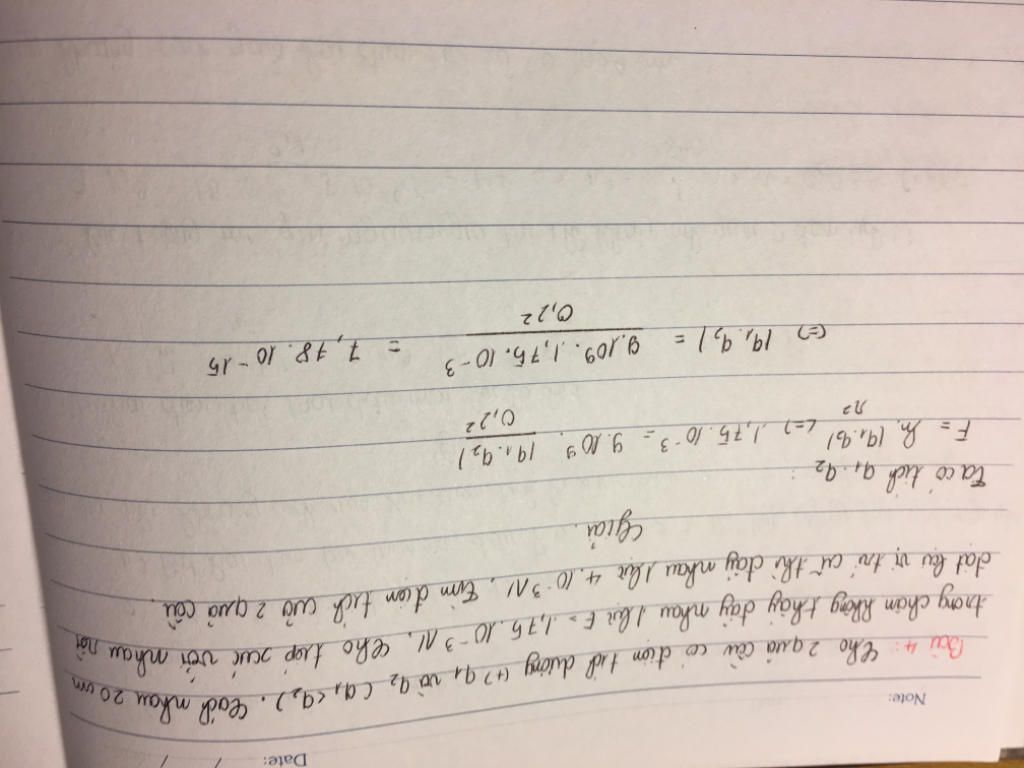 Date: / /
Note:
Bài 4: Cho 2 quả cầu có điện tích dương (+) q₁ và q₂ (q₁<q₂). Cách nhau 20 cm
trong chân không thấy đẩy nhau 1 lực F = 1,75.10⁻³ N. Cho tiếp xúc với nhau rồi
đặt lại vị trí cũ thì đẩy nhau 1 lực 4.10⁻³ N. Tìm điện tích của 2 quả cầu.
Giải.
Ta có tích q₁.q₂ :
F = k. |q₁.q₂| / r² (=) 1,75.10⁻³ = 9.10⁹. |q₁.q₂| / 0,2²
(=) |q₁.q₂| = 9.10⁹.1,75.10⁻³ / 0,2² = 7,78.10⁻¹⁵